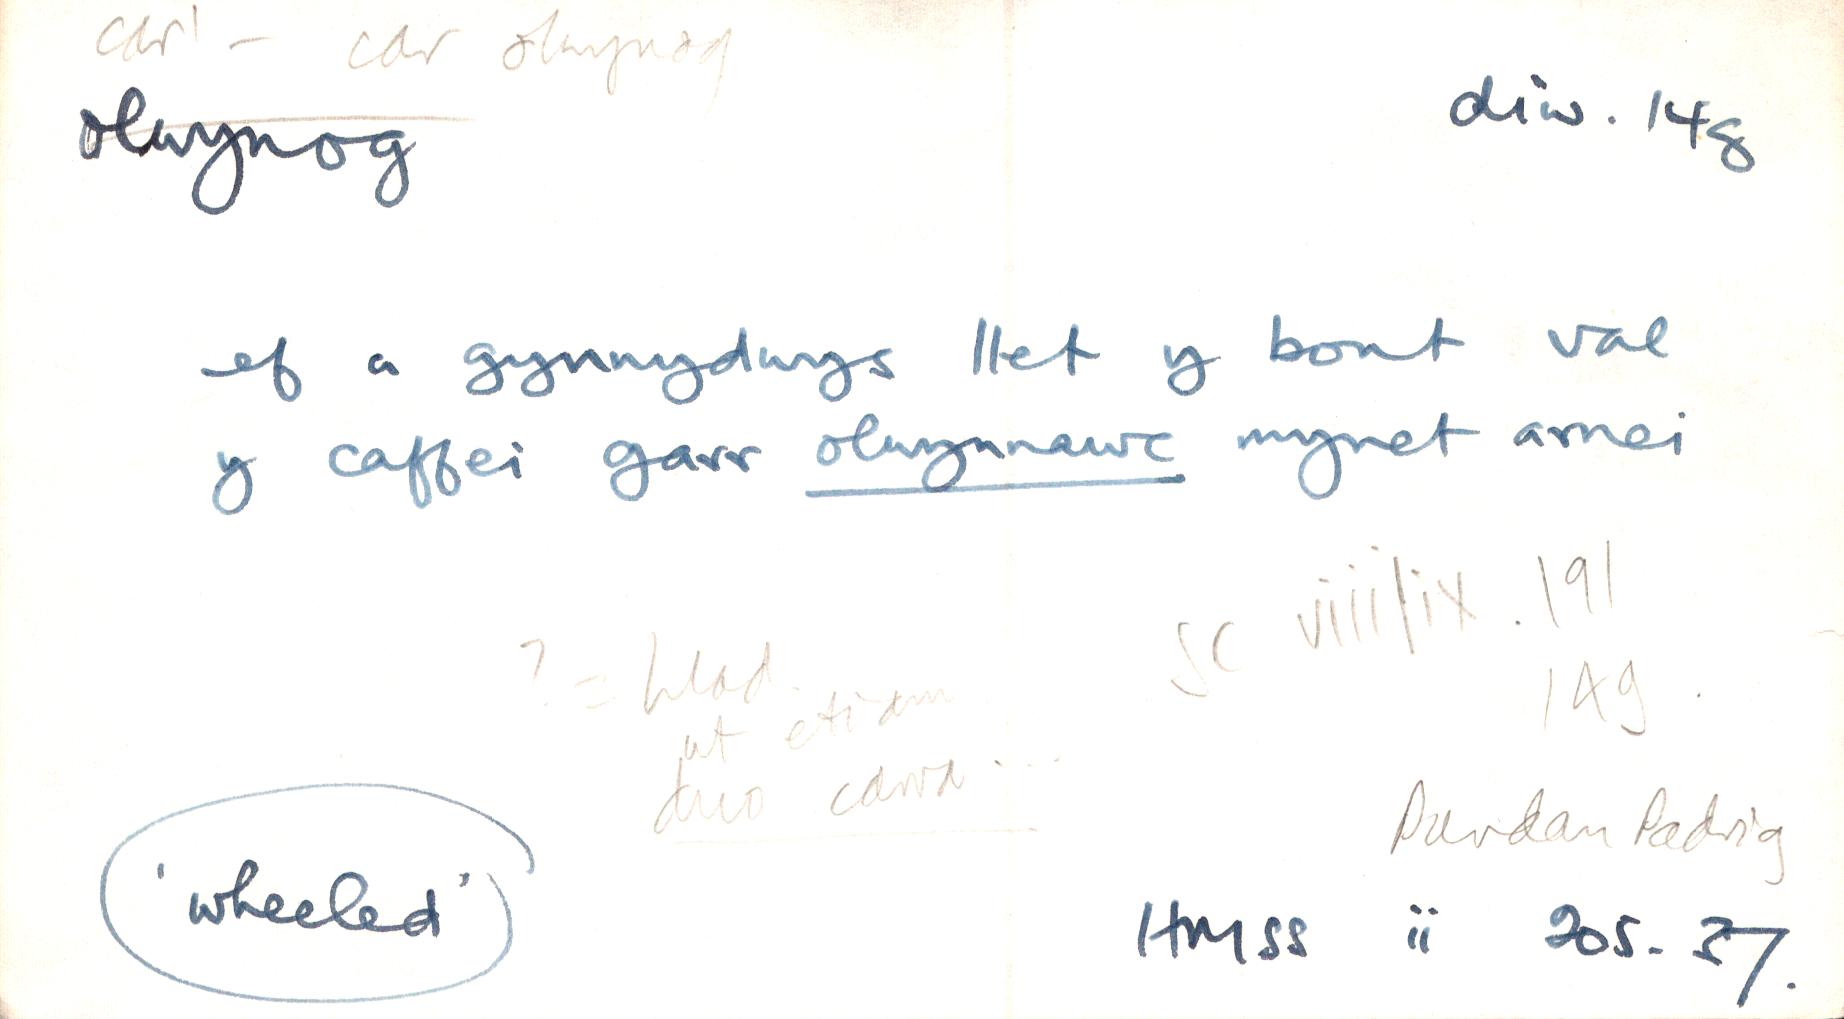 car¹ – car olwynog
olwynog
diw. 14g
ef a gynnydwys llet y bont val
y caffei garr olwynnawc mynet arnei
SC viii/ix . 191
14g .
? = Lled
ut etiam
duo carra ...
Purdan Padrig
'wheeled'
HMSS ii 205. 37.